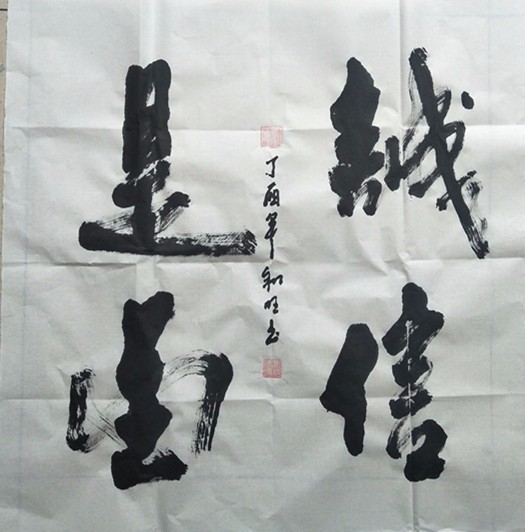 誠信
是金
丁酉年和旺书